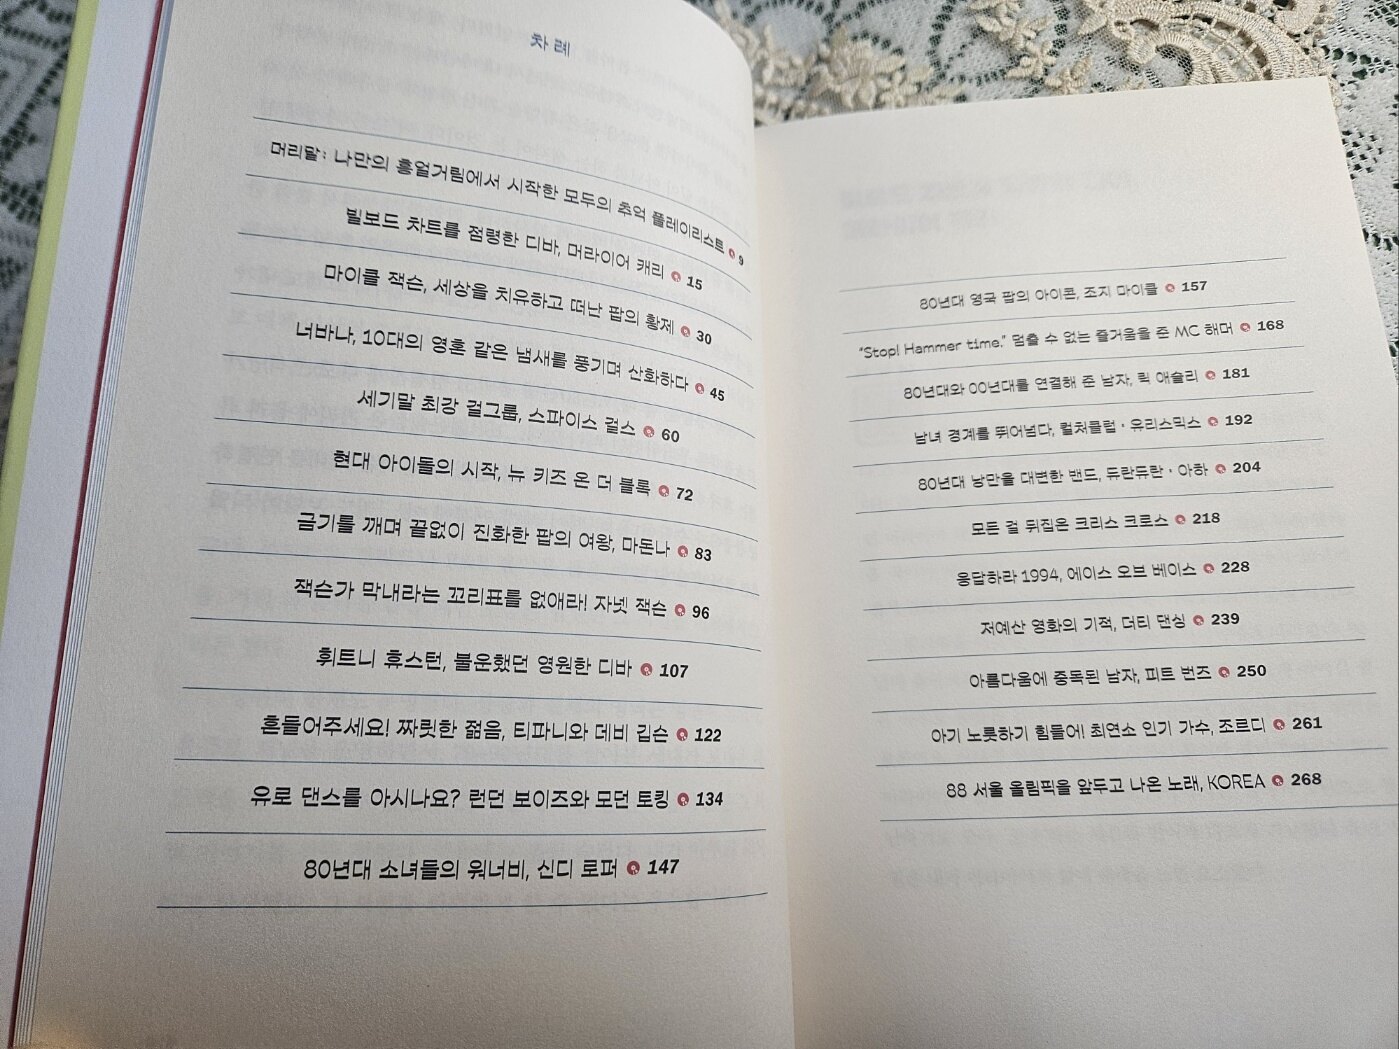 차례
머리말: 나만의 흥얼거림에서 시작한 모두의 추억 플레이리스트 9
빌보드 차트를 점령한 디바, 머라이어 캐리 15
마이클 잭슨, 세상을 치유하고 떠난 팝의 황제 30
너바나, 10대의 영혼 같은 냄새를 풍기며 산화하다 45
세기말 최강 걸그룹, 스파이스 걸스 60
현대 아이돌의 시작, 뉴 키즈 온 더 블록 72
금기를 깨며 끝없이 진화한 팝의 여왕, 마돈나 83
잭슨가 막내라는 꼬리표를 없애라! 자넷 잭슨 96
휘트니 휴스턴, 불운했던 영원한 디바 107
흔들어주세요! 짜릿한 젊음, 티파니와 데비 깁슨 122
유로 댄스를 아시나요? 런던 보이즈와 모던 토킹 134
80년대 소녀들의 워너비, 신디 로퍼 147
80년대 영국 팝의 아이콘, 조지 마이클 157
“Stop! Hammer time.” 멈출 수 없는 즐거움을 준 MC 해머 168
80년대와 00년대를 연결해 준 남자, 릭 애슬리 181
남녀 경계를 뛰어넘다, 컬처클럽 · 유리스믹스 192
80년대 낭만을 대변한 밴드, 듀란듀란 · 아하 204
모든 걸 뒤집은 크리스 크로스 218
응답하라 1994, 에이스 오브 베이스 228
저예산 영화의 기적, 더티 댄싱 239
아름다움에 중독된 남자, 피트 번즈 250
아기 노릇하기 힘들어! 최연소 인기 가수, 조르디 261
88 서울 올림픽을 앞두고 나온 노래, KOREA 268